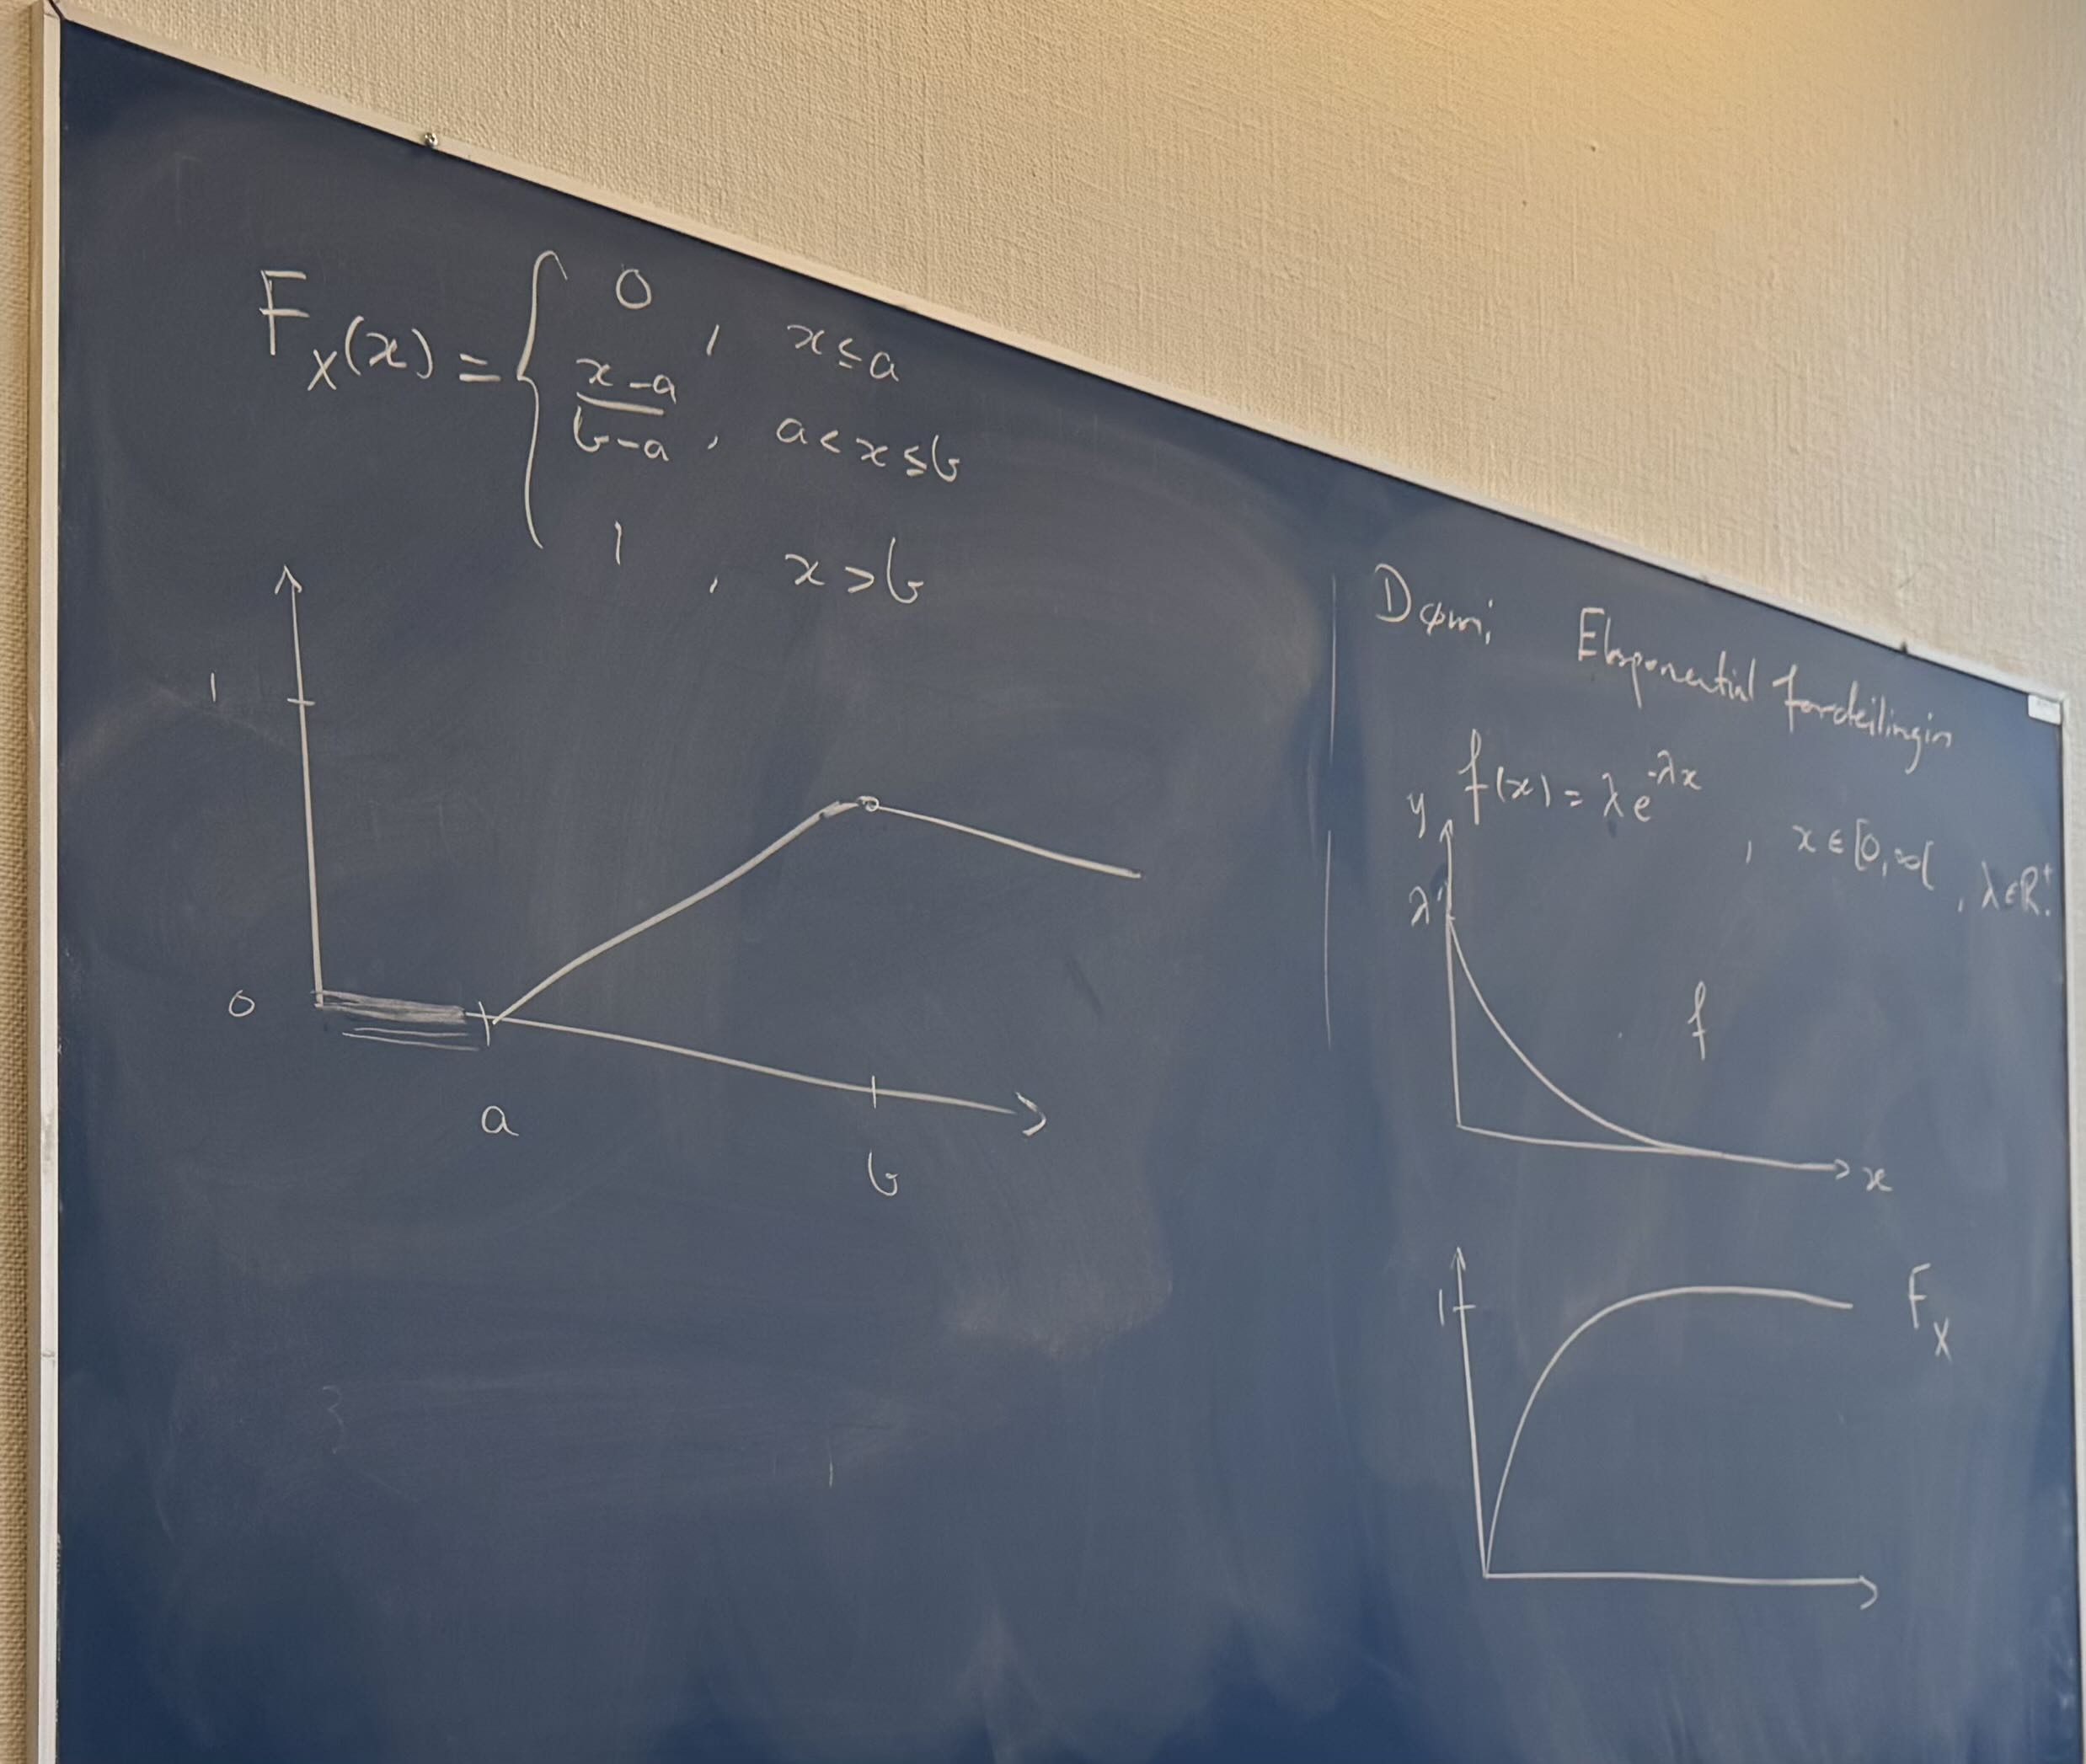 F_X(x) = { 0 , x ≤ a
x-a / b-a , a < x ≤ b
1 , x > b
1
0
a
b
Dømi Eksponential fordeilingin
f(x) = λe^{-λx} , x ∈ [0,∞[ , λ ∈ R⁺.
y
λ
f
x
1
F_X